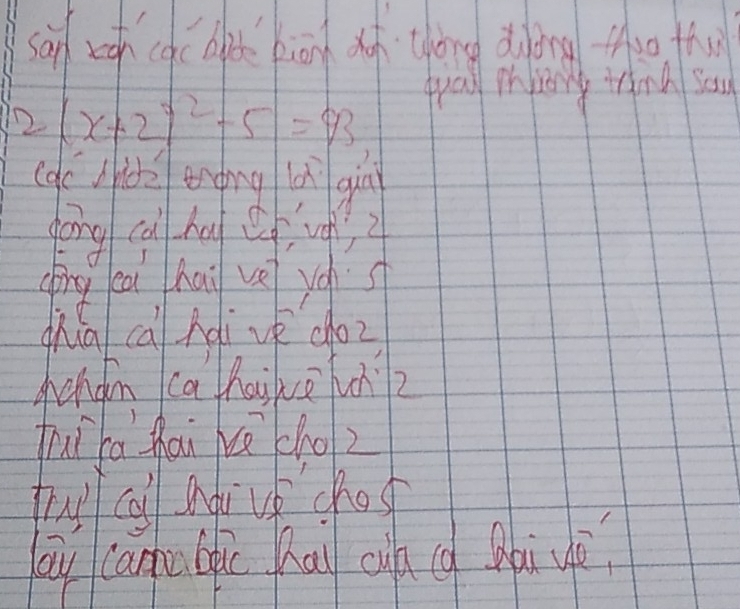 sắp xếp các bước biến đổi tương đương theo thứ
giải phương trình sau
2(x+2)² - 5 = 93
các bước trong lời giải
cộng cả hai vế với 2
cộng cả hai vế với 5
chia cả hai vế cho 2
nhân cả hai vế với 2
Trừ cả hai vế cho 2
Trừ cả hai vế cho 5
lấy căn bậc hai của cả hai vế.